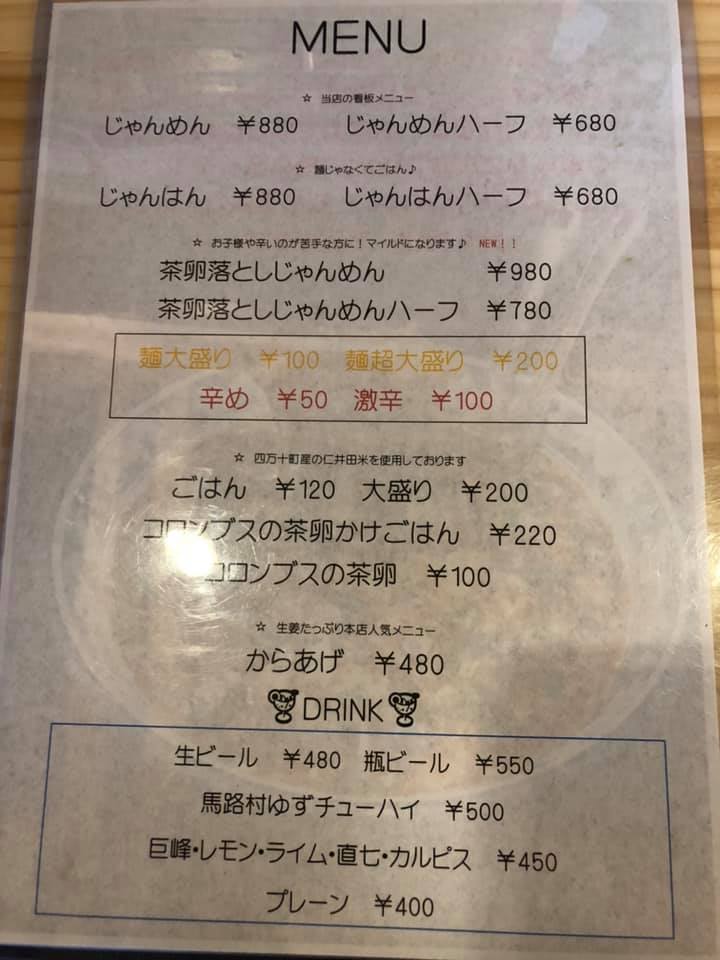 MENU
☆ 当店の看板メニュー
じゃんめん ￥880 じゃんめんハーフ ￥680
☆ 麺じゃなくてごはん♪
じゃんはん ￥880 じゃんはんハーフ ￥680
☆ お子様や辛いのが苦手な方に！マイルドになります♪ NEW！！
茶卵落としじゃんめん ￥980
茶卵落としじゃんめんハーフ ￥780
麺大盛り ￥100 麺超大盛り ￥200
辛め ￥50 激辛 ￥100
☆ 四万十町産の仁井田米を使用しております
ごはん ￥120 大盛り ￥200
コロンブスの茶卵かけごはん ￥220
コロンブスの茶卵 ￥100
☆ 生姜たっぷり本店人気メニュー
からあげ ￥480
DRINK
生ビール ￥480 瓶ビール ￥550
馬路村ゆずチューハイ ￥500
巨峰・レモン・ライム・直七・カルピス ￥450
プレーン ￥400